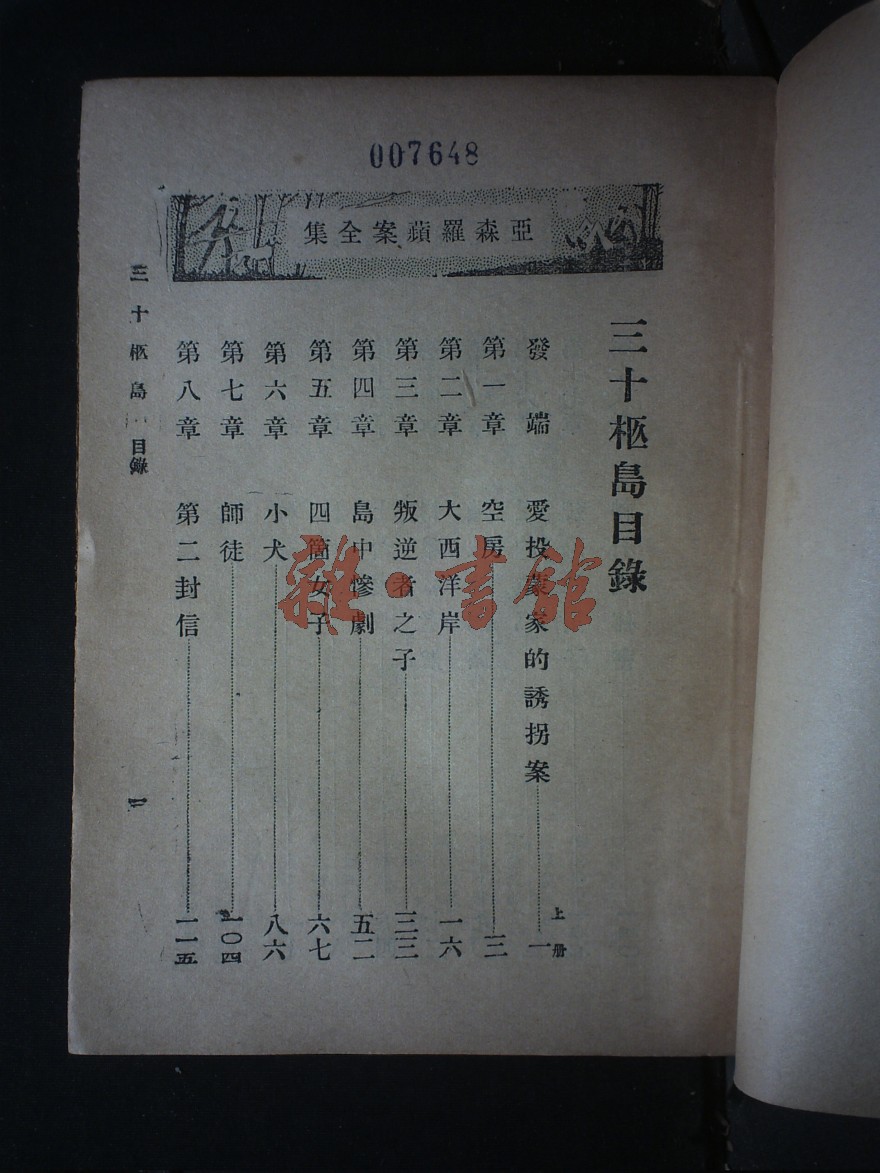 007648
亞森羅蘋案全集
三十柩島目錄
上册
發端 愛投蒙家的誘拐案 一
第一章 空房 三
第二章 大西洋岸 一六
第三章 叛逆者之子 三三
第四章 島中慘劇 五二
第五章 四箇女子 六七
第六章 小犬 八六
第七章 師徒 一〇四
第八章 第二封信 一一五
三十柩島 目錄
一
雜·書館